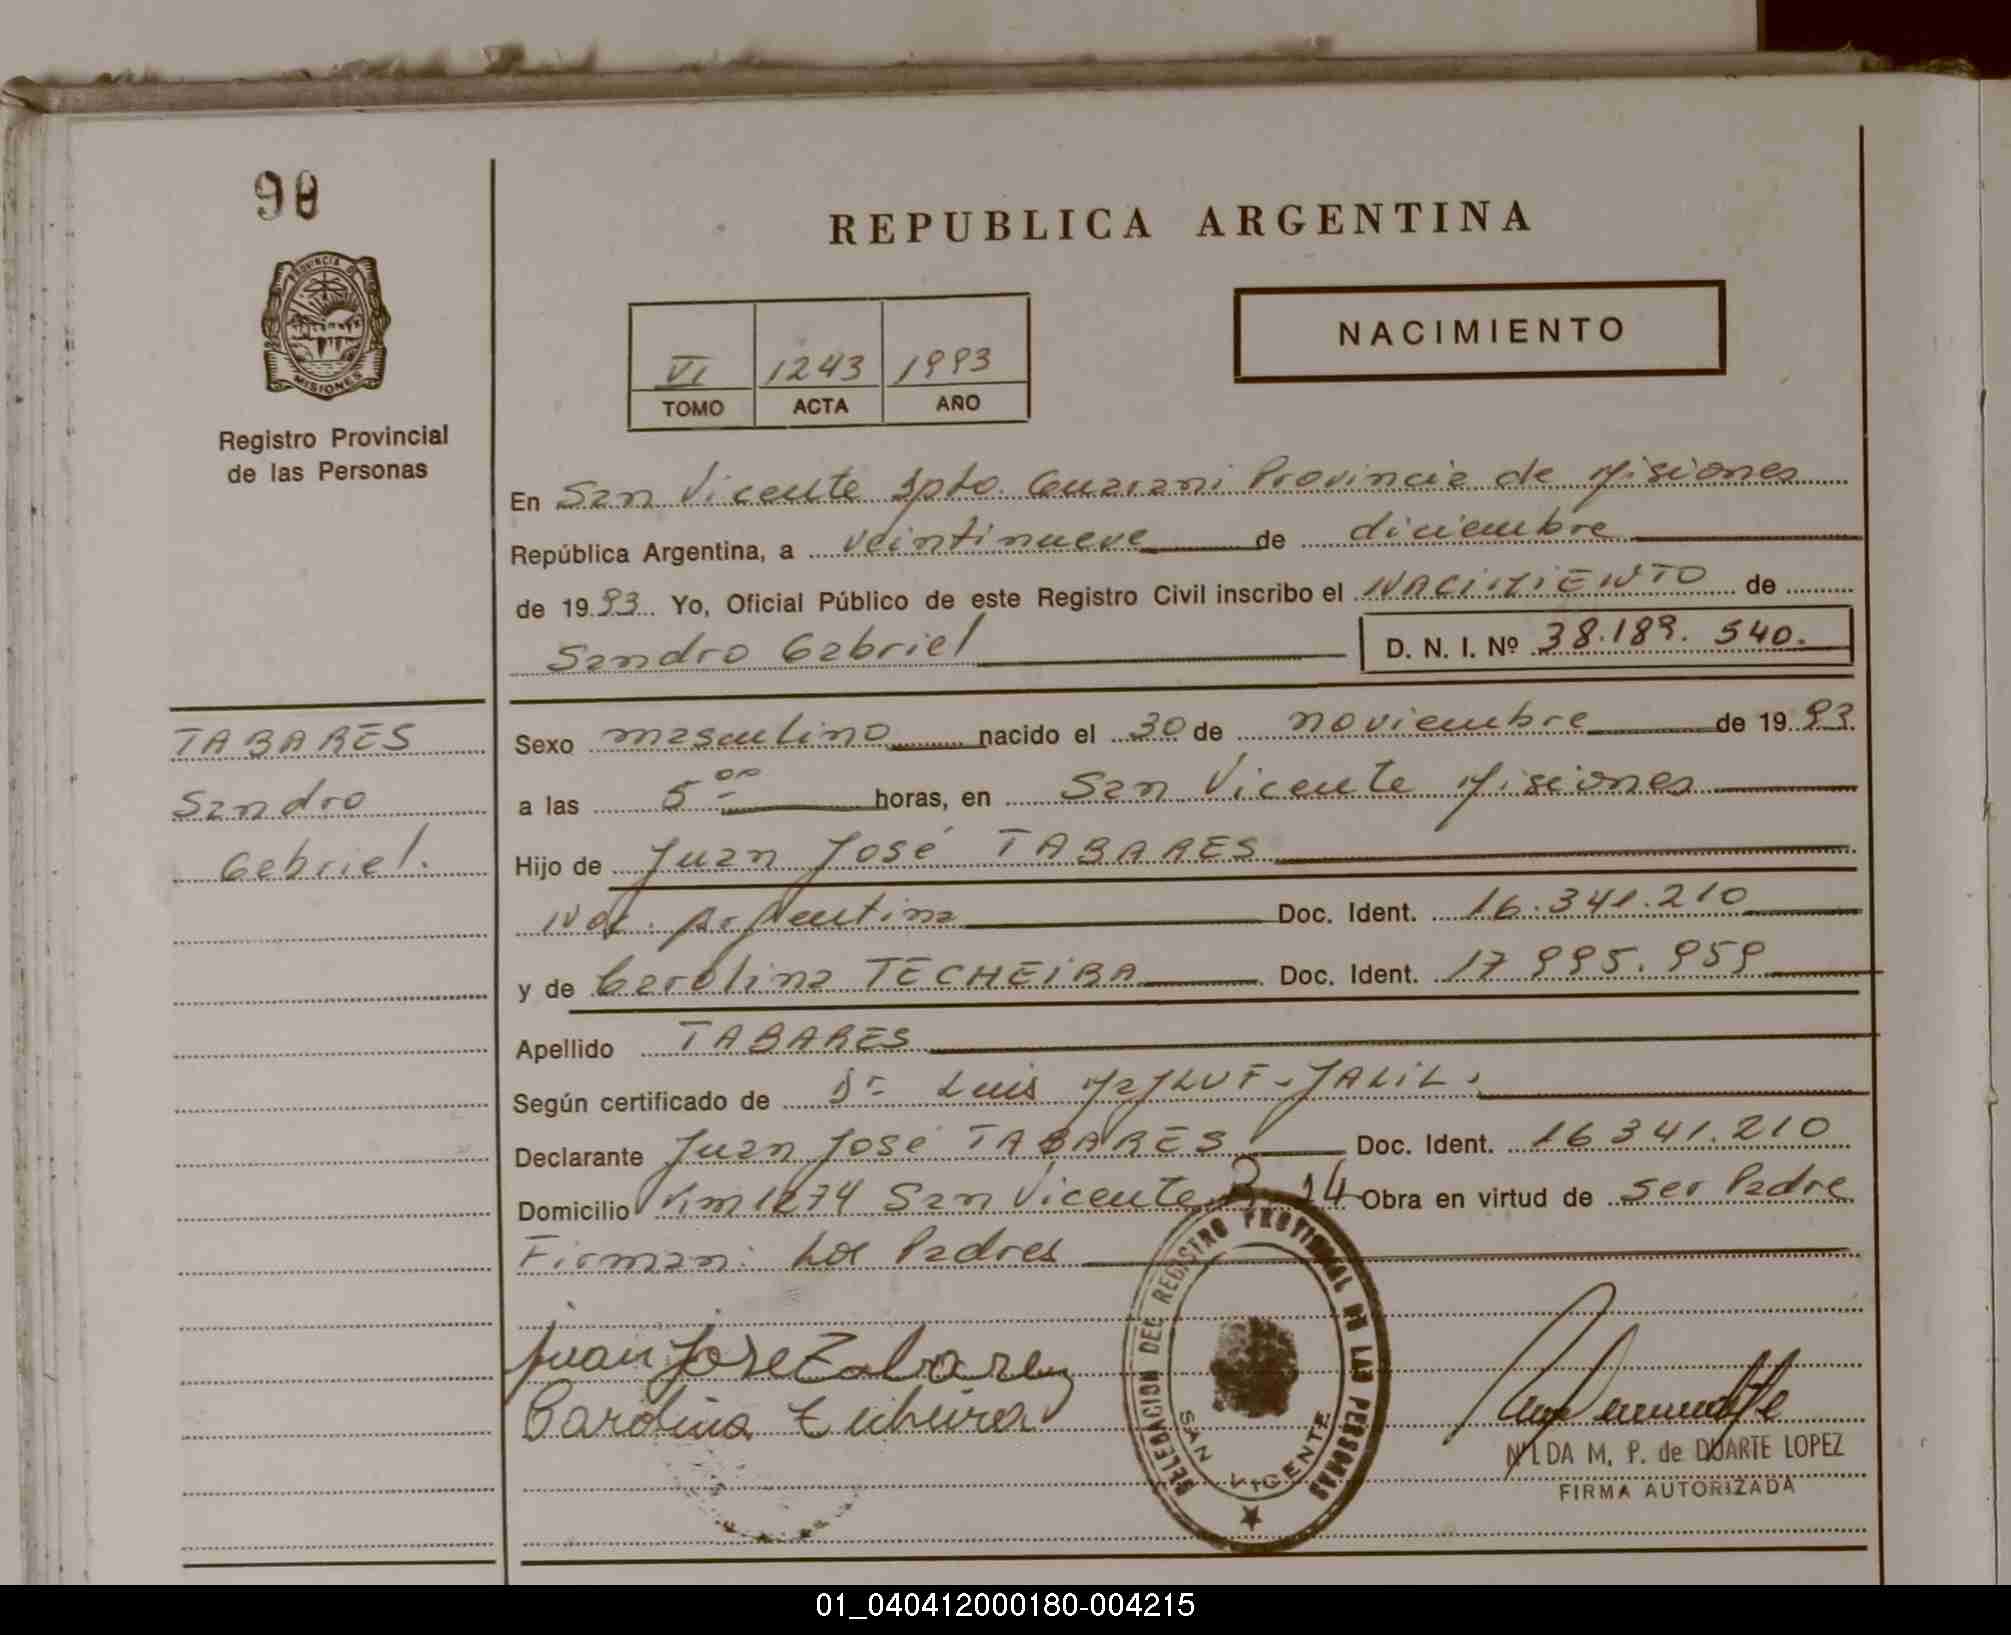 98
REPUBLICA ARGENTINA
PROVINCIA DE
MISIONES
NACIMIENTO
VI 1243 1993
TOMO ACTA AÑO
Registro Provincial
de las Personas
En San Vicente Dpto. Guarani Provincia de Misiones
República Argentina, a veintinueve de diciembre
de 1993. Yo, Oficial Público de este Registro Civil inscribo el NACIMIENTO de
Sandro Gabriel D. N. I. Nº 38.189.540.
TABARES
Sandro
Gabriel.
Sexo masculino nacido el 30 de noviembre de 1993.
a las 5 00 horas, en San Vicente Misiones
Hijo de Juan José TABARES
Nac. Argentina Doc. Ident. 16.341.210
y de Carolina TECHEIRA Doc. Ident. 17 995.959
Apellido TABARES
Según certificado de Dr Luis MAJLUF-JALIL.
Declarante Juan José TABARES Doc. Ident. 16 341.210
Domicilio Km 1274 San Vicente R 14 Obra en virtud de ser Padre
Firman: Los Padres
Juan Jose Tabarez
Carolina Techeira
DELEGACION DEL REGISTRO PROVINCIAL DE LAS PERSONAS
SAN VICENTE
NILDA M. P. de DUARTE LOPEZ
FIRMA AUTORIZADA
01_040412000180-004215